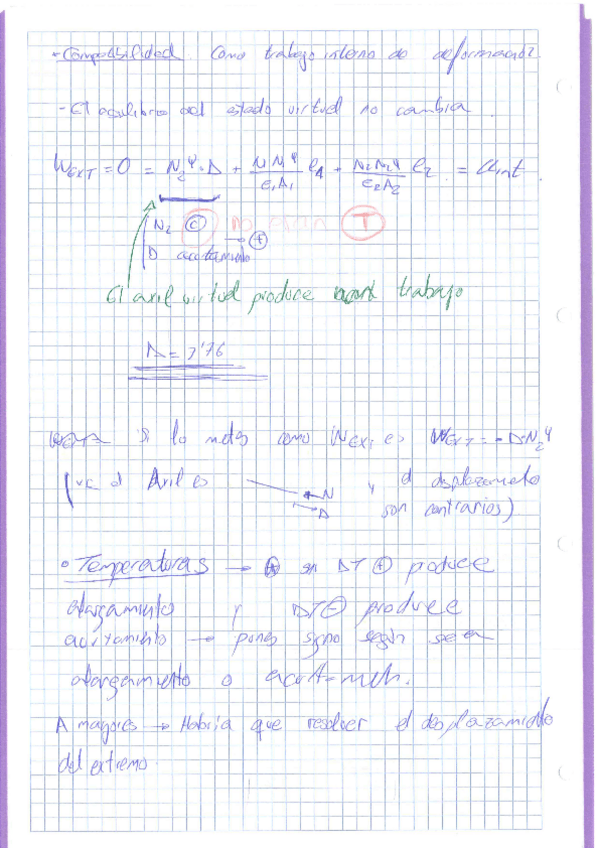 - Compatibilidad. Como trabajo interno de deformación?
- El equilibrio del estado virtual no cambia.
W_EXT = 0 = N₂^φ · Δ + N₁ N₁^φ / E₁A₁ ℓ₁ + N₂ N₂^φ / E₂A₂ ℓ₂ = U int.
N₂ (C) (T)
D acortamiento → (+)
El axil virtual produce trabajo
Δ = 7'76
NOTA Si lo metes como W_EXT es W_EXT = - D·N₂^φ
(ya el Axil es ← N y el desplazamiento
→ Δ son contrarios)
• Temperaturas → si ΔT (+) produce
alargamiento y ΔT (-) produce
acortamiento → pones signo según sea
alargamiento o
A mayores → Habría que resolver el desplazamiento
del extremo.